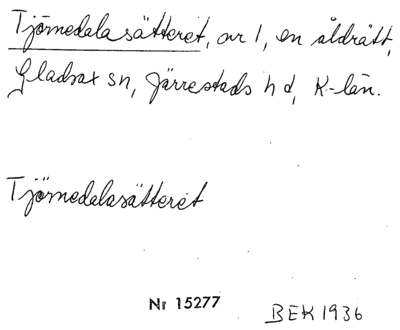 Tjörnedalasätteret, nr 1, en åldrått,
Gladsax sn, Järrestads hd, K-län.
Tjörnedalasätteret
Nr 15277
BEK 1936